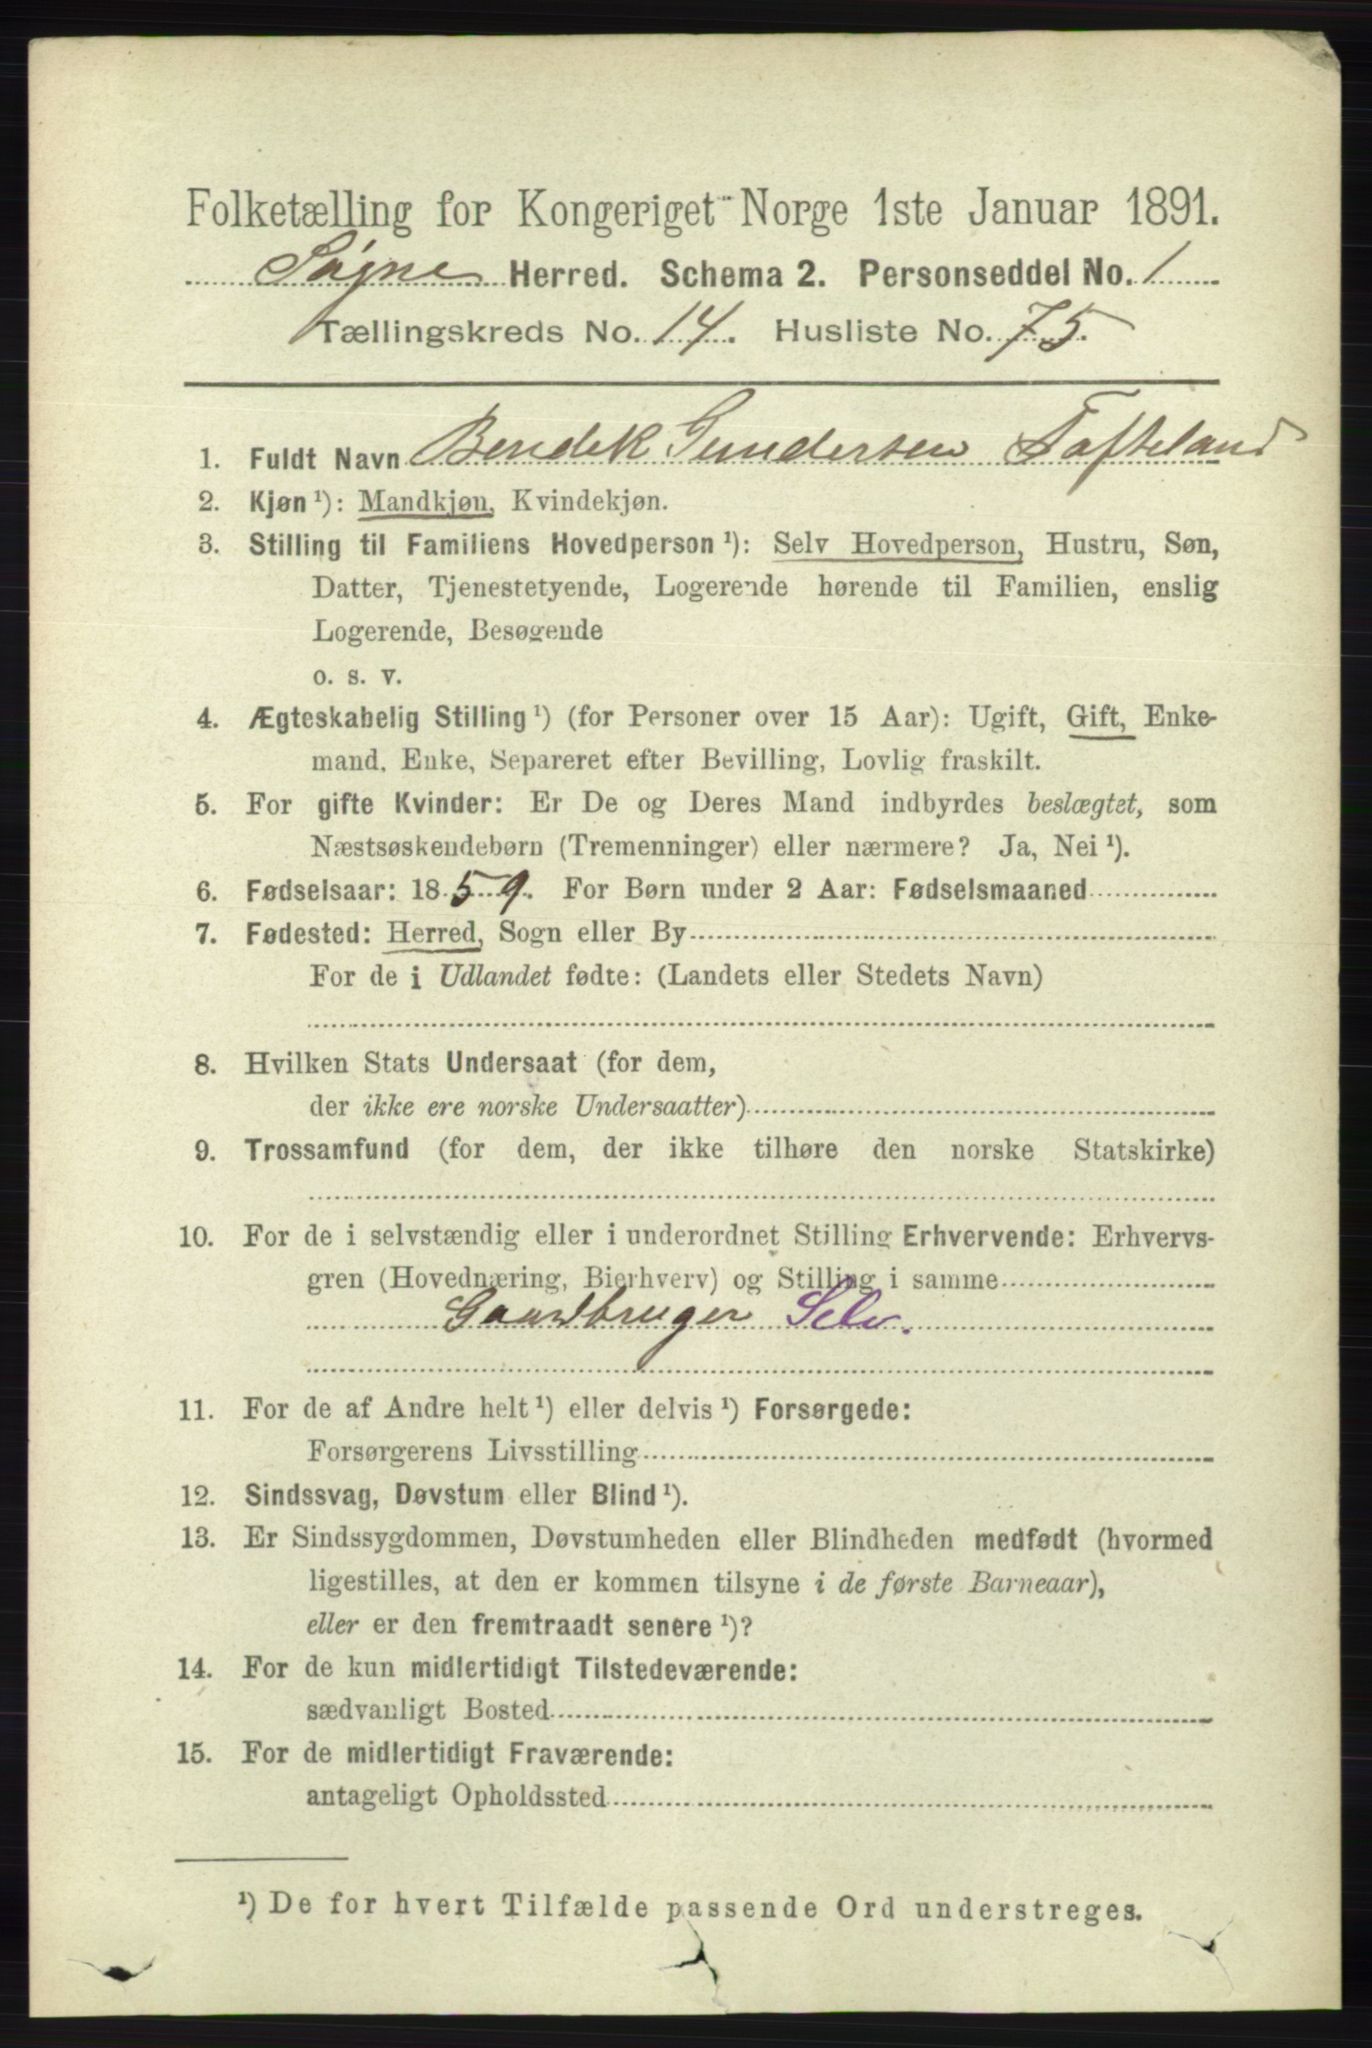 Folketælling for Kongeriget Norge 1ste Januar 1891.
Søgne Herred. Schema 2. Personseddel No. 1
Tællingskreds No. 14. Husliste No. 75.
1. Fuldt Navn Bendek Gundersen Tofteland
2. Kjøn ¹): Mandkjøn, Kvindekjøn.
3. Stilling til Familiens Hovedperson ¹): Selv Hovedperson, Hustru, Søn,
Datter, Tjenestetyende, Logerende hørende til Familien, enslig
Logerende, Besøgende
o. s. v.
4. Ægteskabelig Stilling ¹) (for Personer over 15 Aar): Ugift, Gift, Enke-
mand, Enke, Separeret efter Bevilling, Lovlig fraskilt.
5. For gifte Kvinder: Er De og Deres Mand indbyrdes beslægtet, som
Næstsøskendebørn (Tremenninger) eller nærmere? Ja, Nei ¹).
6. Fødselsaar: 1859. For Børn under 2 Aar: Fødselsmaaned
7. Fødested: Herred, Sogn eller By
For de i Udlandet fødte: (Landets eller Stedets Navn)
8. Hvilken Stats Undersaat (for dem,
der ikke ere norske Undersaatter)
9. Trossamfund (for dem, der ikke tilhøre den norske Statskirke)
10. For de i selvstændig eller i underordnet Stilling Erhvervende: Erhvervs-
gren (Hovednæring, Bierhverv) og Stilling i samme
Gaardbruger Selv.
11. For de af Andre helt ¹) eller delvis ¹) Forsørgede:
Forsørgerens Livsstilling
12. Sindssvag, Døvstum eller Blind ¹).
13. Er Sindssygdommen, Døvstumheden eller Blindheden medfødt (hvormed
ligestilles, at den er kommen tilsyne i de første Barneaar),
eller er den fremtraadt senere ¹)?
14. For de kun midlertidigt Tilstedeværende:
sædvanligt Bosted
15. For de midlertidigt Fraværende:
antageligt Opholdssted
¹) De for hvert Tilfælde passende Ord understreges.